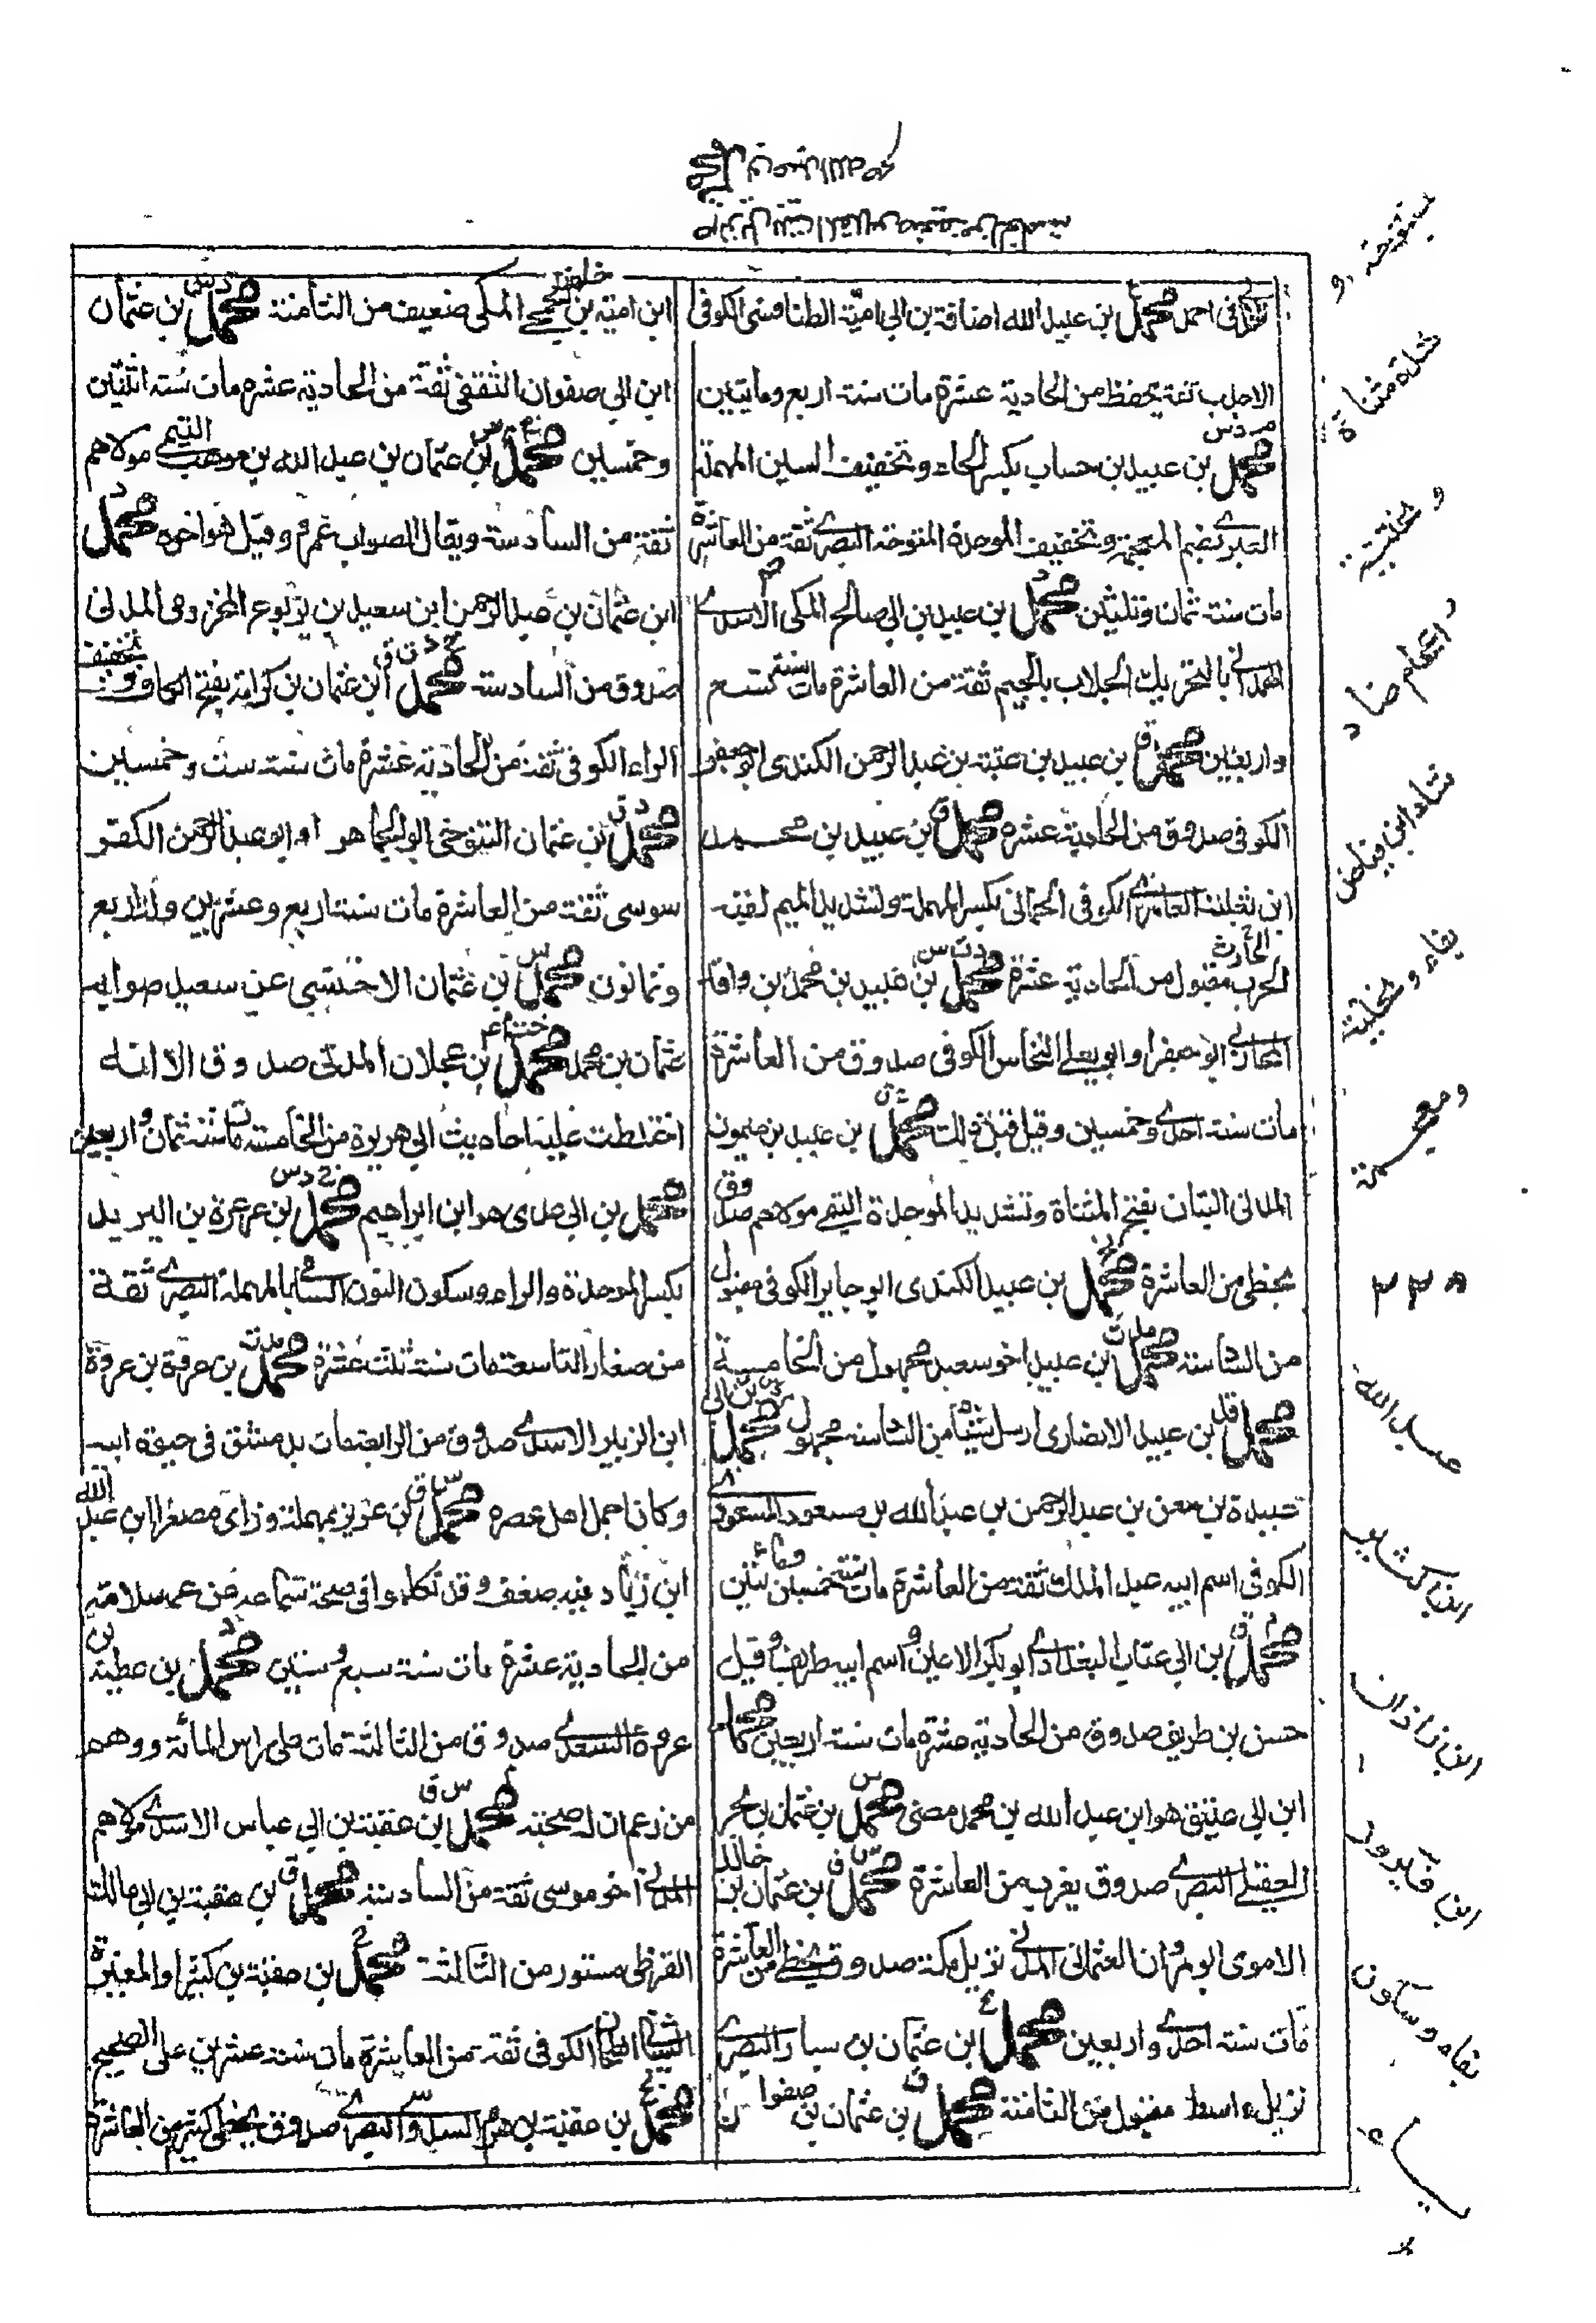 الكوفى احمد محمد بن عبيد الله اضافة بن ابى امية الطنافسى الكوفى
الاحدب ثقة يحفظ من الحادية عشرة مات سنة اربع ومايتين
م د س
محمد بن عبيد بن حساب بكسر الحاء وتخفيف السين المهملة
الغبرى بضم المعجمة وتخفيف الموحدة المفتوحة البصرى ثقة من العاشرة
مات سنة ثمان وثلثين محمد بن عبيد بن ابى صالح المكى
الهمدانى بالتحريك الجلاب بالجيم ثقة من العاشرة مات سنة تسع
واربعين محمد بن عبيد بن عتبة بن عبد الرحمن الكندى ابو جعفر
الكوفى صدوق من الحادية عشرة محمد بن عبيد بن محمد
ابن ثعلبة العامرى الكوفى الحمانى بكسر المهملة وتشديد الميم لقبه
الحرب مقبول من الحادية عشرة محمد بن عبيد بن محمد بن واقد
المحاربى ابو جعفر او ابو يعلى النحاس الكوفى صدوق من العاشرة
مات سنة احدى وخمسين وقيل قبل ذلك محمد بن عبيد بن ميمون
المدنى التبان بفتح المثناة وتشديد الموحدة التيمى مولاهم صدوق
يخطى من العاشرة محمد بن عبيد الكندى ابو جابر الكوفى مقبول
من السادسة محمد بن عبيد اخو سعيد مجهول من الخامسة
محمد بن عبيد الانصارى ارسل شيئا من السادسة مجهول محمد بن ابى
عبيدة بن معن بن عبد الرحمن بن عبد الله بن مسعود المسعودى
الكوفى اسم ابيه عبد الملك ثقة من العاشرة مات سنة خمس ومائتين
محمد بن ابى عتاب البغدادى ابو بكر الاعين واسم ابيه طريف وقيل
حسن بن طريف صدوق من الحادية عشرة مات سنة اربعين محمد
ابن ابى عتيق هو ابن عبد الله بن محمد مضى محمد بن عثمان بن بحر
العقيلى البصرى صدوق يغرب من العاشرة محمد بن عثمان بن خالد
الاموى ابو مروان العثمانى المدنى نزيل مكة صدوق يخطى من العاشرة
مات سنة احدى واربعين محمد ابن عثمان بن سيار البصرى
نزيل واسط مقبول من الثامنة محمد بن عثمان بن صفوان
ابن امية بن خلف الجمحى المكى ضعيف من الثامنة محمد بن عثمان
ابن ابى صفوان الثقفى ثقة من الحادية عشرة مات سنة اثنتين
وخمسين محمد بن عثمان بن عبد الله بن موهب التيمى مولاهم
ثقة من السادسة ويقال الصواب عمرو وقيل هو اخوه محمد
ابن عثمان بن عبد الرحمن ابن سعيد بن يربوع المخزومى المدنى
صدوق من السادسة محمد ابن عثمان بن كرامة بفتح الكاف وتخفيف
الراء الكوفى ثقة من الحادية عشرة مات سنة ست وخمسين
محمد بن عثمان التنوخى ابو الجماهر او ابو عبد الرحمن الكفر
سوسى ثقة من العاشرة مات سنة اربع وعشرين وله اربع
وثمانون محمد بن عثمان الاخنسى عن سعيد صوابه
عثمان بن محمد محمد بن عجلان المدنى صدوق الا انه
اختلطت عليه احاديث ابى هريرة من الخامسة مات سنة ثمان واربعين
محمد بن ابى عدى هو ابن ابراهيم محمد بن عرعرة بن البريد
بكسر الموحدة والراء وسكون النون السامى بالمهملة البصرى ثقة
من صغار التاسعة مات سنة ثلث عشرة محمد بن عروة بن عروة
ابن الزبير الاسدى صدوق من الرابعة مات بدمشق فى حيوة ابيه
وكان اجمل اهل عصره محمد بن عزيز بمهملة وزاى مصغرا ابن عبد الله
ابن زياد فيه ضعف وقد تكلموا فى صحة سماعه من عمه سلامة
من الحادية عشرة مات سنة سبع وستين محمد بن عطية بن
عروة السعدى صدوق من الثالثة مات على راس المائة ووهم
من زعم ان له صحبة محمد بن عقبة بن ابى عياش الاسدى مولاهم
المدنى اخو موسى ثقة من السادسة محمد بن عقبة بن ابى مالك
القرظى مستور من الثالثة محمد بن عقبة بن كثير او المغيرة
الشيبانى الطحان الكوفى ثقة من العاشرة مات سنة عشرين على الصحيح
محمد بن عقبة بن هرم السدوسى البصرى صدوق يخطى كثيرا من العاشرة
مثناة
و تحتية
شاد ابن فياض
بفاء وتحتية
ومعجمة
عبد الله
ابن كثير
ابن زاذان
ابن فيروز
بفاء وسكون